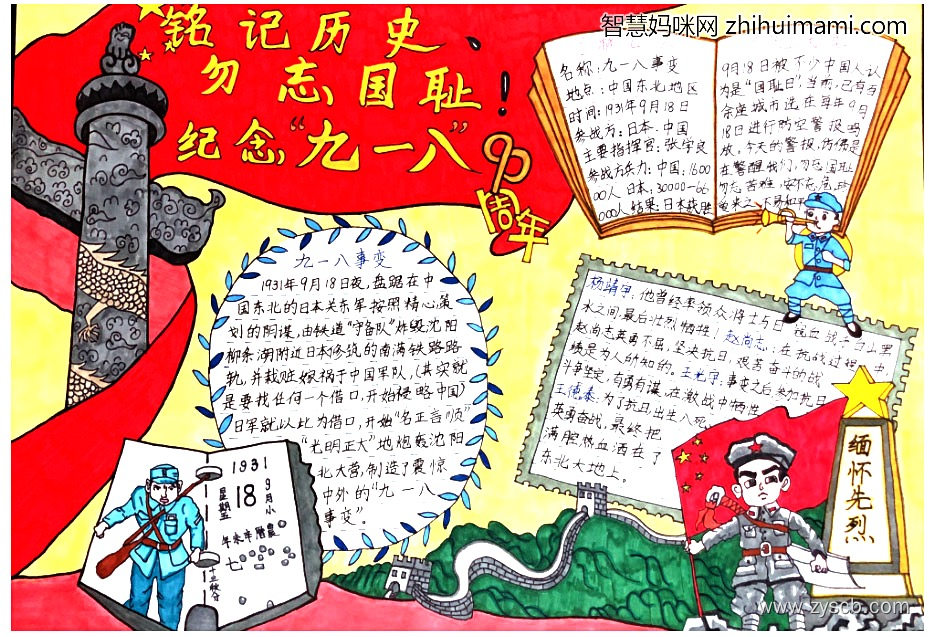 智慧妈咪网 zhihuimami.com
铭记历史、
勿志国耻！
纪念“九一八”
90
周年
名称：九一八事变
地点：中国东北地区
时间：1931年9月18日
参战方：日本、中国
主要指挥官：张学良
参战方兵力：中国：1600
00人 日本：30000-66
000人 结果：日本获胜
9月18日被不少中国人认
为是“国耻日”，当而，已有百
余座城市选在每年9月
18日进行防空警报鸣
放。今天的警报，仿佛是
在警醒我们，勿忘国耻
勿忘苦难，
九一八事变
1931年9月18日夜，盘踞在中
国东北的日本关东军按照精心策
划的阴谋，由铁道“守备队”炸毁沈阳
柳条湖附近日本修筑的南满铁路路
轨，并栽赃嫁祸于中国军队，（其实就
是要找任何一个借口，开始侵略中国）
日军就以此为借口，开始“名正言顺”
“光明正大”地炮轰沈阳
北大营，制造了震惊
中外的“九一八
事变”。
杨靖宇：他曾经率领众将士与日 浴血战于白山黑
水之间，最后壮烈牺牲！赵尚志：在抗战过程中，
赵尚志英勇不屈，坚决抗日，艰苦奋斗的战
绩是为人所知的。王光宇：事变之后参加抗日
斗争坚定，有勇有谋，在激战中牺牲
王德泰：为了抗日出生入死，
英勇奋战，最终把
满腔热血洒在了
东北大地上。
1931
星期五
18
9月小
年未辛曆農
七
缅怀先烈
www.zyscb.com